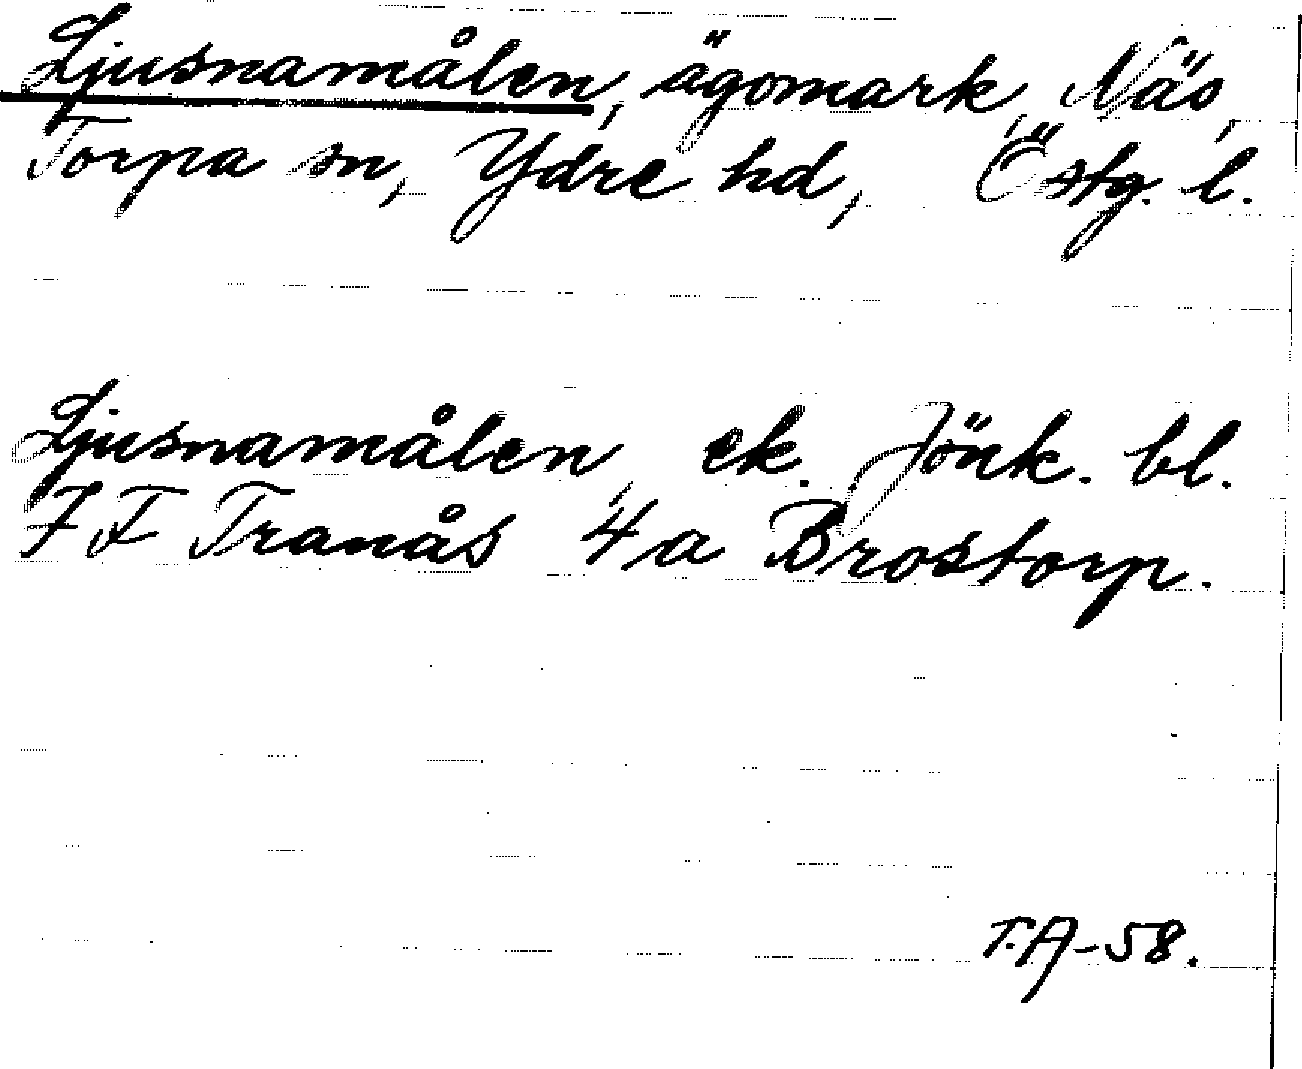 Ljusnamålen, ägomark, Näs,
Torpa sn, Ydre hd, Östg. l.
Ljusnamålen, ek. Jönk. bl.
7 F Tranås 4 a Brostorp.
T.A-58.